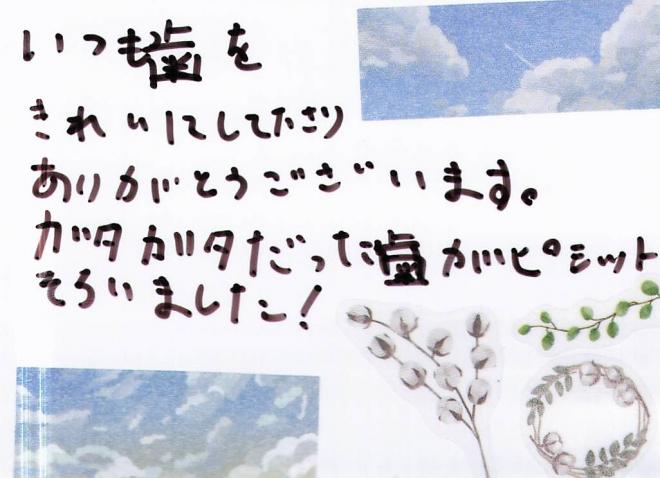 いつも歯を
きれいにしてたさり
ありがとうございます。
ガタガタだった歯がピシット
そろいました!